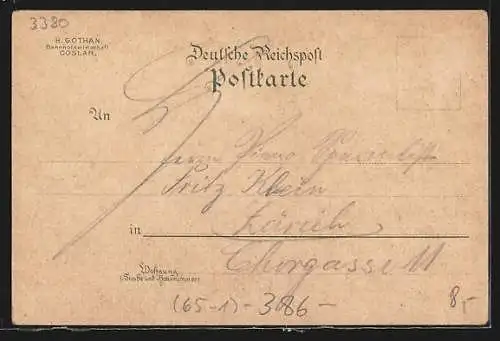 3380
H. GOTHAN,
Bahnhofswirthschaft
GOSLAR.
Deutsche Reichspost
Postkarte
An
Fritz Klein
in Zürich
Wohnung
(Straße und Hausnummer)
Thorgasse 11
(65-1)-386-
8,-